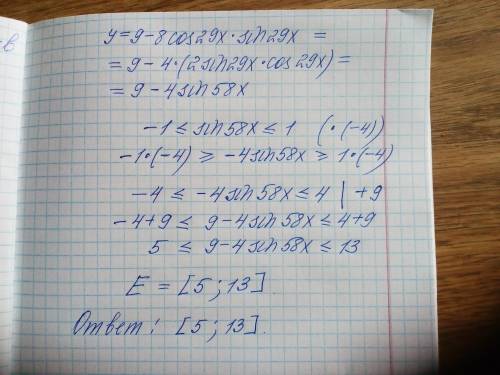 y=9-8cos29x·sin29x =
= 9-4·(2sin29x·cos29x)=
= 9-4sin58x
-1 ≤ sin58x ≤ 1 (·(-4))
-1·(-4) ≥ -4sin58x ≥ 1·(-4)
-4 ≤ -4sin58x ≤ 4 | +9
-4+9 ≤ 9-4sin58x ≤ 4+9
5 ≤ 9-4sin58x ≤ 13
E = [5;13]
Ответ: [5;13].